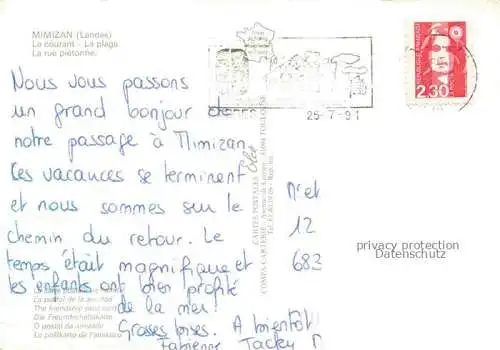 MIMIZAN (Landes)
Le courant - La plage
La rue piétonne.
25-7-91
2,30
Nous vous passons
un grand bonjour de
notre passage à Mimizan.
Ces vacances se terminent
et nous sommes sur le
chemin du retour. Le
temps était magnifique et
les enfants ont bien profité
de la mer!
Grosses bises. A bientôt!
Fabienne Jacky
CARTES POSTALES
M et
12
683
privacy protection
Datenschutz
La postal de la amistad
The friendship post card
Die Freundschaftskarte
O postal da amizade